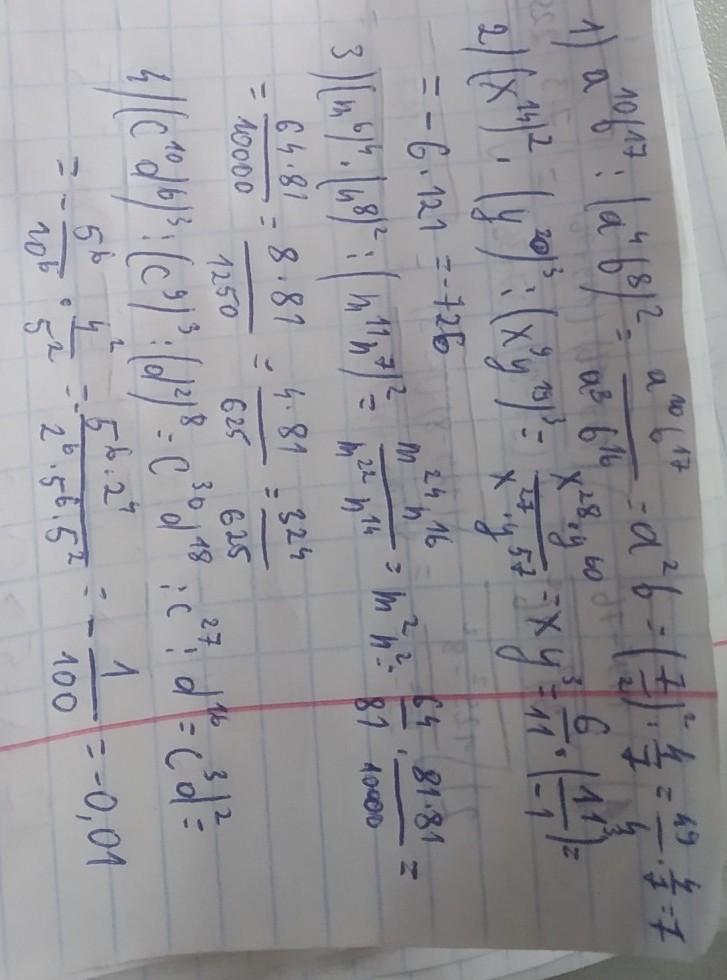 1) a¹⁰b¹⁷ : (a⁴b⁸)² = a¹⁰b¹⁷/a⁸b¹⁶ = a²b = (7/2)² · 4/7 = 49/4 · 4/7 = 7
2) (x¹⁴)² · (y²⁰)³ : (x⁹y¹⁹)³ = x²⁸·y⁶⁰/x²⁷·y⁵⁷ = xy³ = 6/11 · (11/-1)³ =
= -6·121 = -726
3) (m⁶)⁴ · (n⁸)² : (m¹¹n⁷)² = m²⁴n¹⁶/m²²n¹⁴ = m²n² = 64/81 · 81·81/10000 =
= 64·81/10000 = 8·81/1250 = 4·81/625 = 324/625
4) (c¹⁰d⁶)³ : (c⁹)³ : (d²)⁸ = c³⁰d¹⁸ : c²⁷ : d¹⁶ = c³d² =
= - 5⁶/10⁶ · 4²/5² = - 5⁶·2⁴/2⁶·5⁶·5² = - 1/100 = -0,01